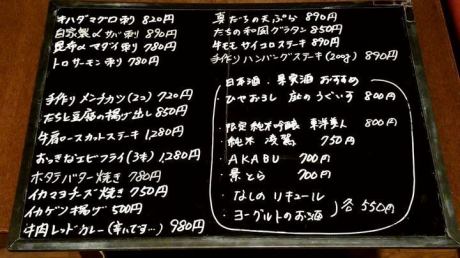 キハダマグロ刺り 820円
自家製〆サバ刺り 890円
昆布〆マダイ刺り 780円
トロサーモン刺り 780円
手作りメンチカツ(2コ) 720円
たちと豆腐の揚げ出し 850円
牛肩ロースカットステーキ 1,280円
おっきなエビフライ(3本) 1,280円
ホタテバター焼き 780円
イカマヨチーズ焼き 750円
イカゲソ揚げ 500円
牛肉レッドカレー(辛いです…) 980円
真だちの天ぷら 890円
たちの和風グラタン 850円
牛モモサイコロステーキ 890円
手作りハンバーグステーキ(200g) 890円
日本酒・果実酒 おすすめ
・ひやおろし 庭のうぐいす 800円
・限定純米吟醸 東洋美人 800円
・純米 浅鷲 750円
・AKABU 700円
・景とら 700円
・なしのリキュール
・ヨーグルトのお酒
各550円